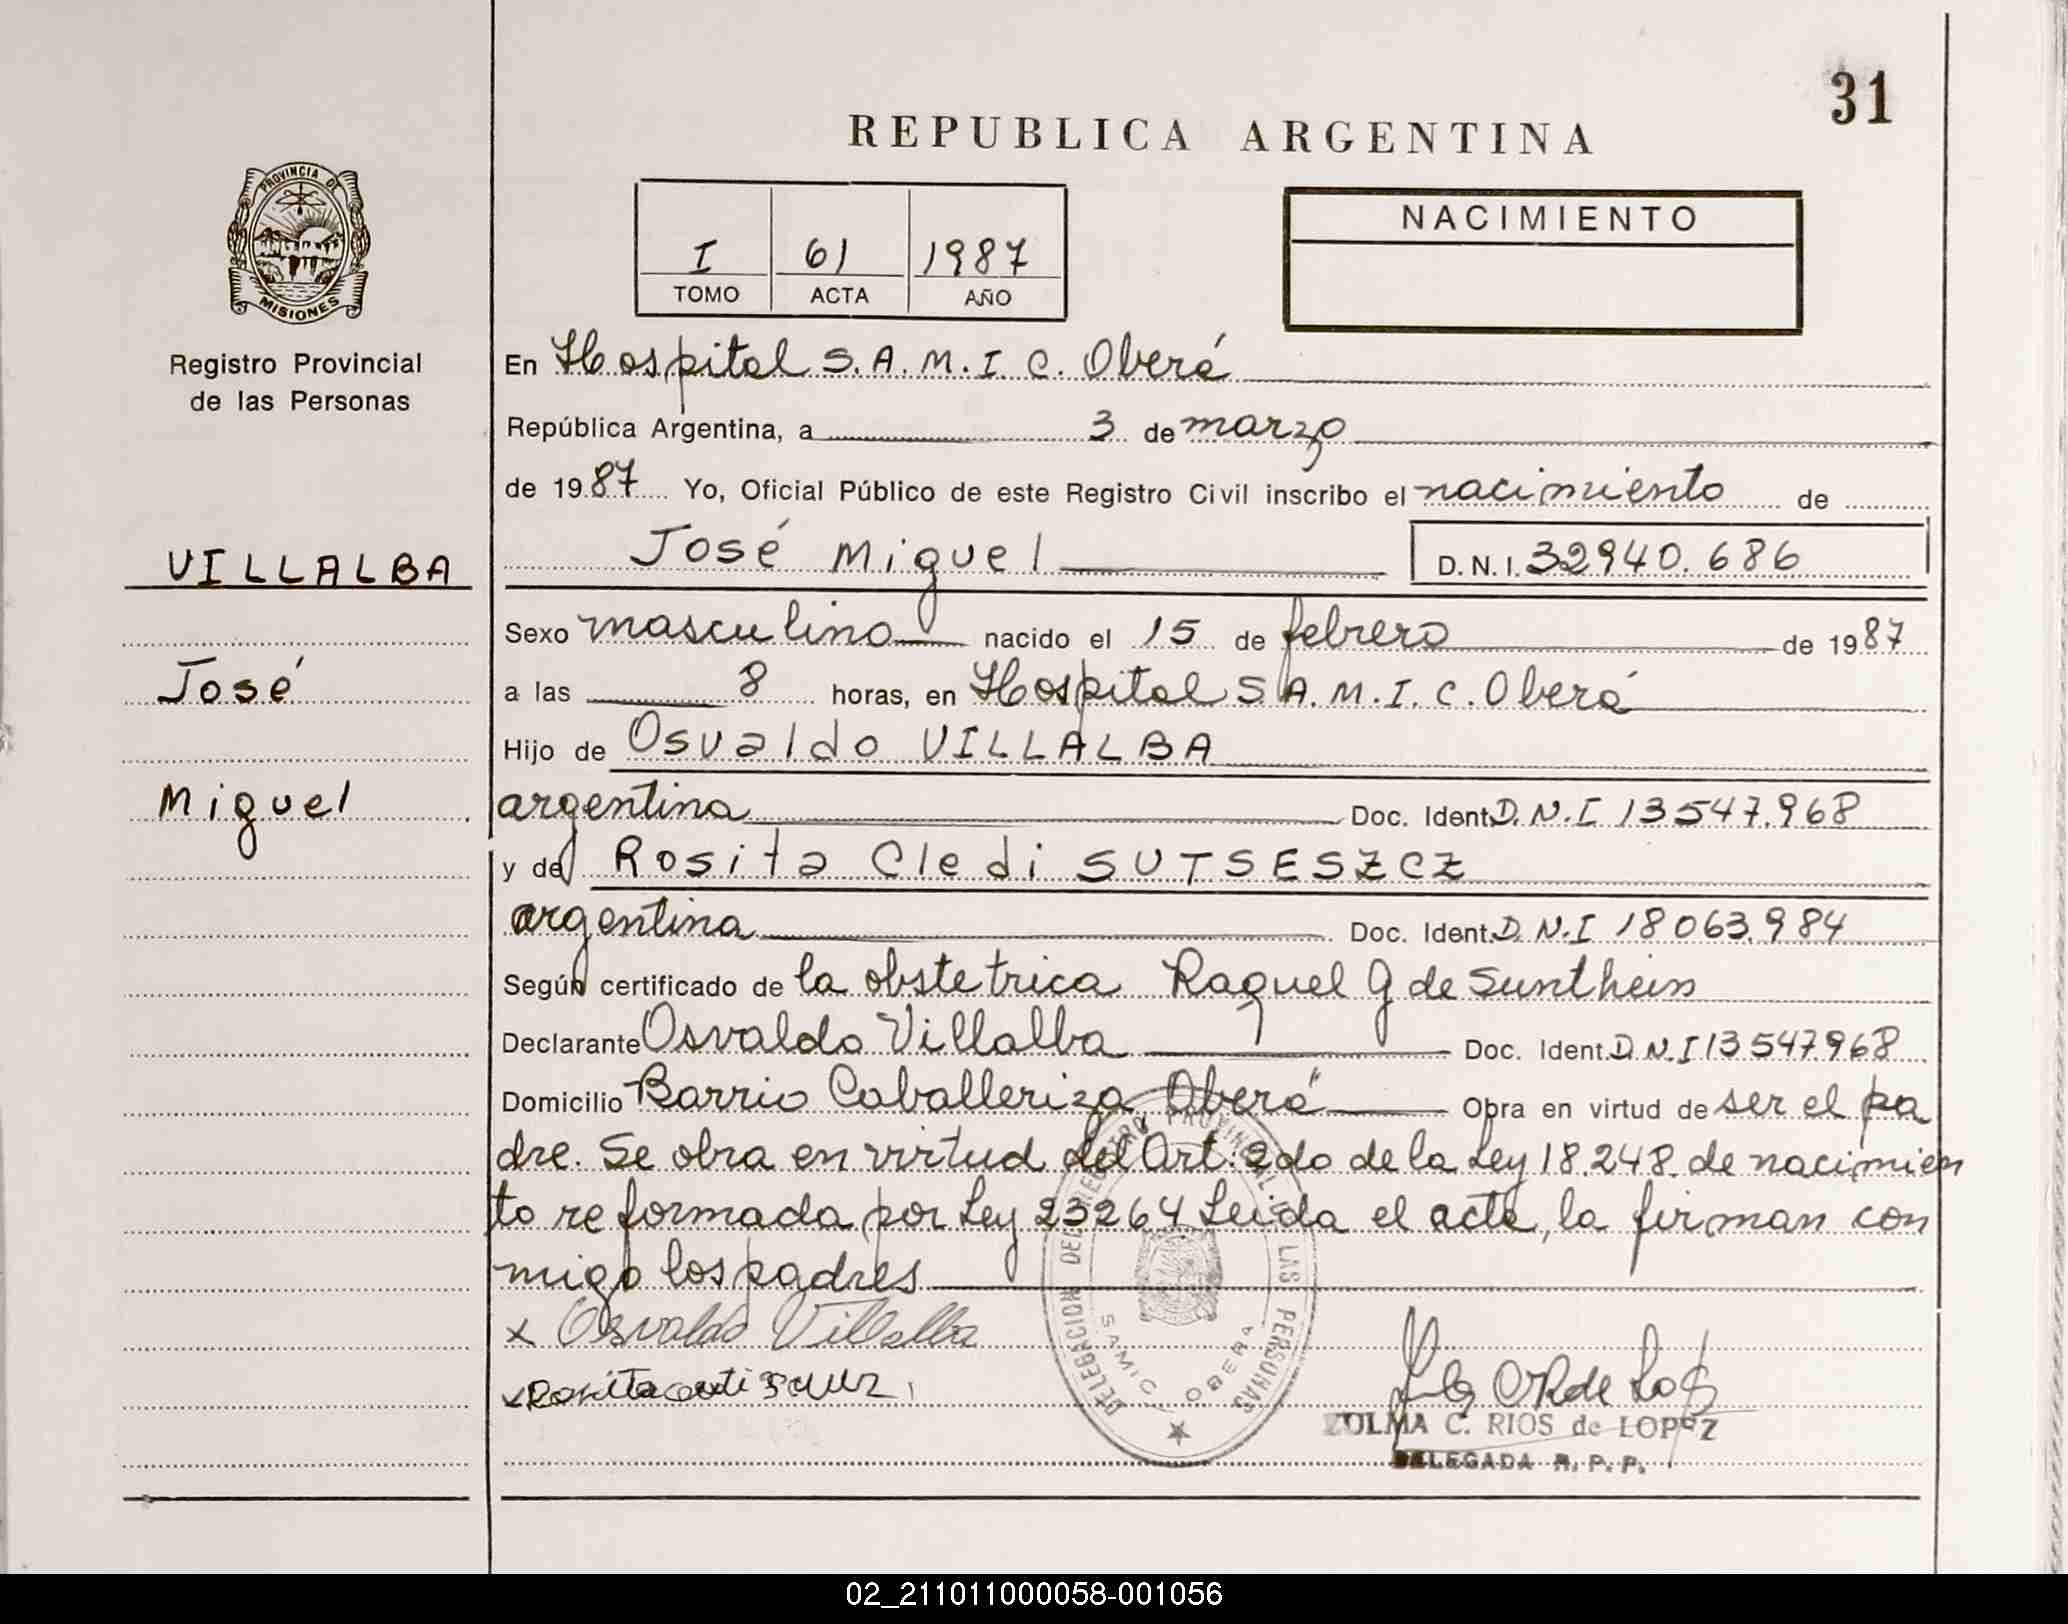 31
REPUBLICA ARGENTINA
PROVINCIA DE
MISIONES
Registro Provincial
de las Personas
I 61 1987
TOMO ACTA AÑO
NACIMIENTO
En Hospital S.A.M.I.C. Oberá
República Argentina, a 3 de marzo
de 1987 Yo, Oficial Público de este Registro Civil inscribo el nacimiento de
VILLALBA
José Miguel D.N.I. 32940.686
Sexo masculino nacido el 15 de febrero de 1987
José
a las 8 horas, en Hospital S.A.M.I.C. Oberá
Hijo de Osvaldo VILLALBA
Miguel
argentina Doc. Ident. D.N.I 13547.968
y de Rosita Cledi SUTSESZCZ
argentina Doc. Ident. D.N.I 18063.984
Según certificado de la obstetrica Raquel G de Sunthein
Declarante Osvaldo Villalba Doc. Ident. D.N.I 13547968
Domicilio Barrio Caballeriza, Oberá Obra en virtud de ser el pa
dre. Se obra en virtud del Art. 2do de la Ley 18.248 de nacimien
to reformada por Ley 23264 Leida el acta, la firman con
migo los padres
x Osvaldo Villalba
x Rosita
DELEGACION DEL REGISTRO PROVINCIAL DE LAS PERSONAS
SAMIC OBERA
ZULMA C. RIOS de LOPEZ
DELEGADA R.P.P.
02_211011000058-001056